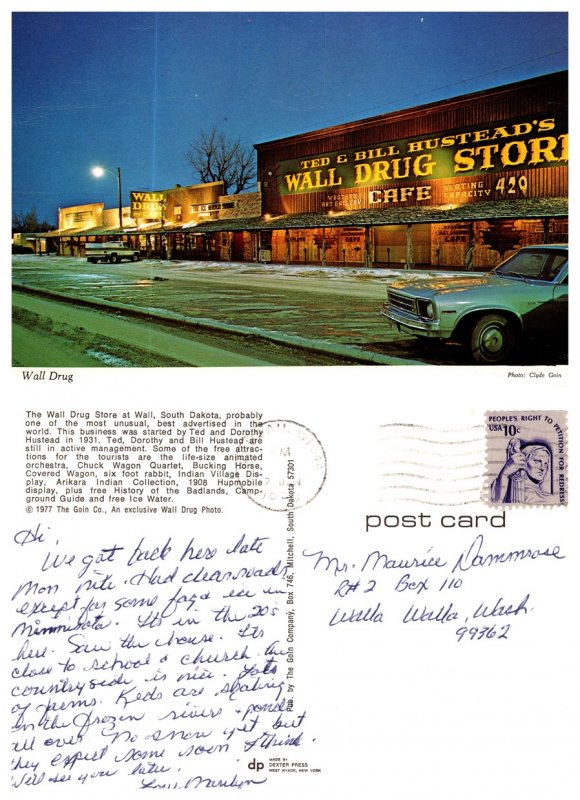 TED & BILL HUSTEAD'S
WALL DRUG STORE
WESTERN ART GALLERY CAFE SEATING CAPACITY 420
WALL
DRUG
CAFE
Wall Drug
Photo: Clyde Goin
The Wall Drug Store at Wall, South Dakota, probably
one of the most unusual, best advertised in the
world. This business was started by Ted and Dorothy
Hustead in 1931. Ted, Dorothy and Bill Hustead are
still in active management. Some of the free attrac-
tions for the tourists are the life-size animated
orchestra, Chuck Wagon Quartet, Bucking Horse,
Covered Wagon, six foot rabbit, Indian Village Dis-
play, Arikara Indian Collection, 1908 Hupmobile
display, plus free History of the Badlands, Camp-
ground Guide and free Ice Water.
© 1977 The Goin Co., An exclusive Wall Drug Photo.
Hi,
We got back here late
Mon nite. Had clear roads
except for some fog & ice in
Minnisota. It's in the 20s
here. Saw the house. Its
close to school & church. The
countryside is nice. Lots
of farms. Kids are skating
on the frozen rivers & ponds
all over. No snow yet but
they expect some soon I think.
Will see you later.
Love Marilyn
Pub. by The Goin Company, Box 746, Mitchell, South Dakota 57301
dp
MADE BY
DEXTER PRESS
WEST NYACK, NEW YORK
PEOPLE'S RIGHT TO PETITION
USA 10c
FOR REDRESS
post card
Mr. Maurice Dammrose
R#2 Box 110
Walla Walla, Wash.
99362